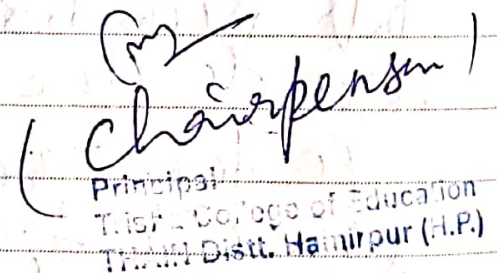 (Chairperson)
Principal
Trisha College of Education
Distt. Hamirpur (H.P.)